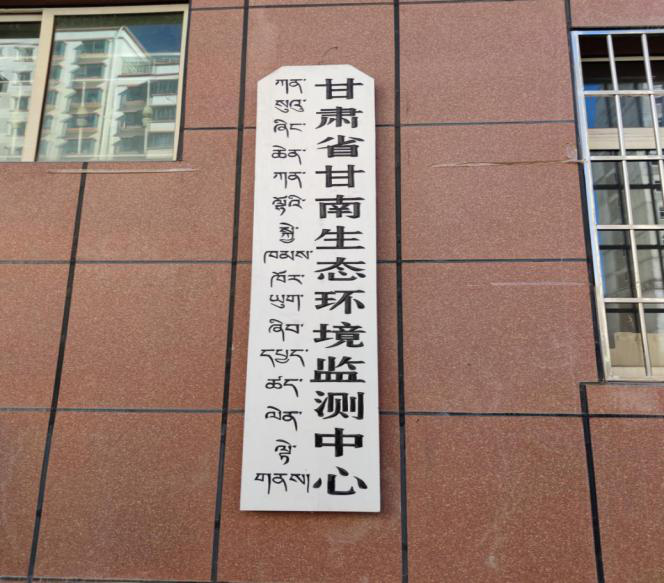 ཀན་སུའུ་ཞིང་ཆེན་ཀན་ལྷོའི་སྐྱེ་ཁམས་ཁོར་ཡུག་ཞིབ་དཔྱད་ཚད་ལེན་ལྟེ་གནས།
甘肃省甘南生态环境监测中心